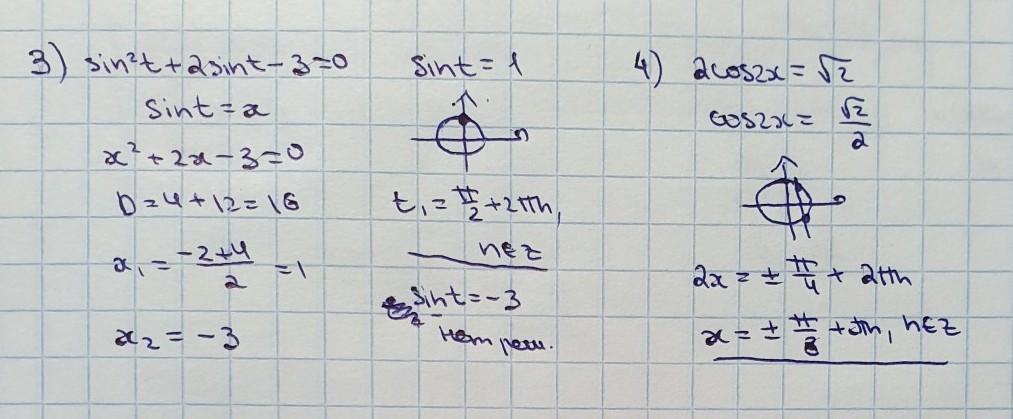 3) sin²t + 2sint - 3 = 0
sint = x
x² + 2x - 3 = 0
D = 4 + 12 = 16
x₁ = (-2+4)/2 = 1
x₂ = -3
sint = 1
t₁ = π/2 + 2πn,
n∈Z
sint = -3
нет реш.
4) 2cos2x = √2
cos2x = √2/2
2x = ± π/4 + 2πn
x = ± π/8 + πn, n∈Z